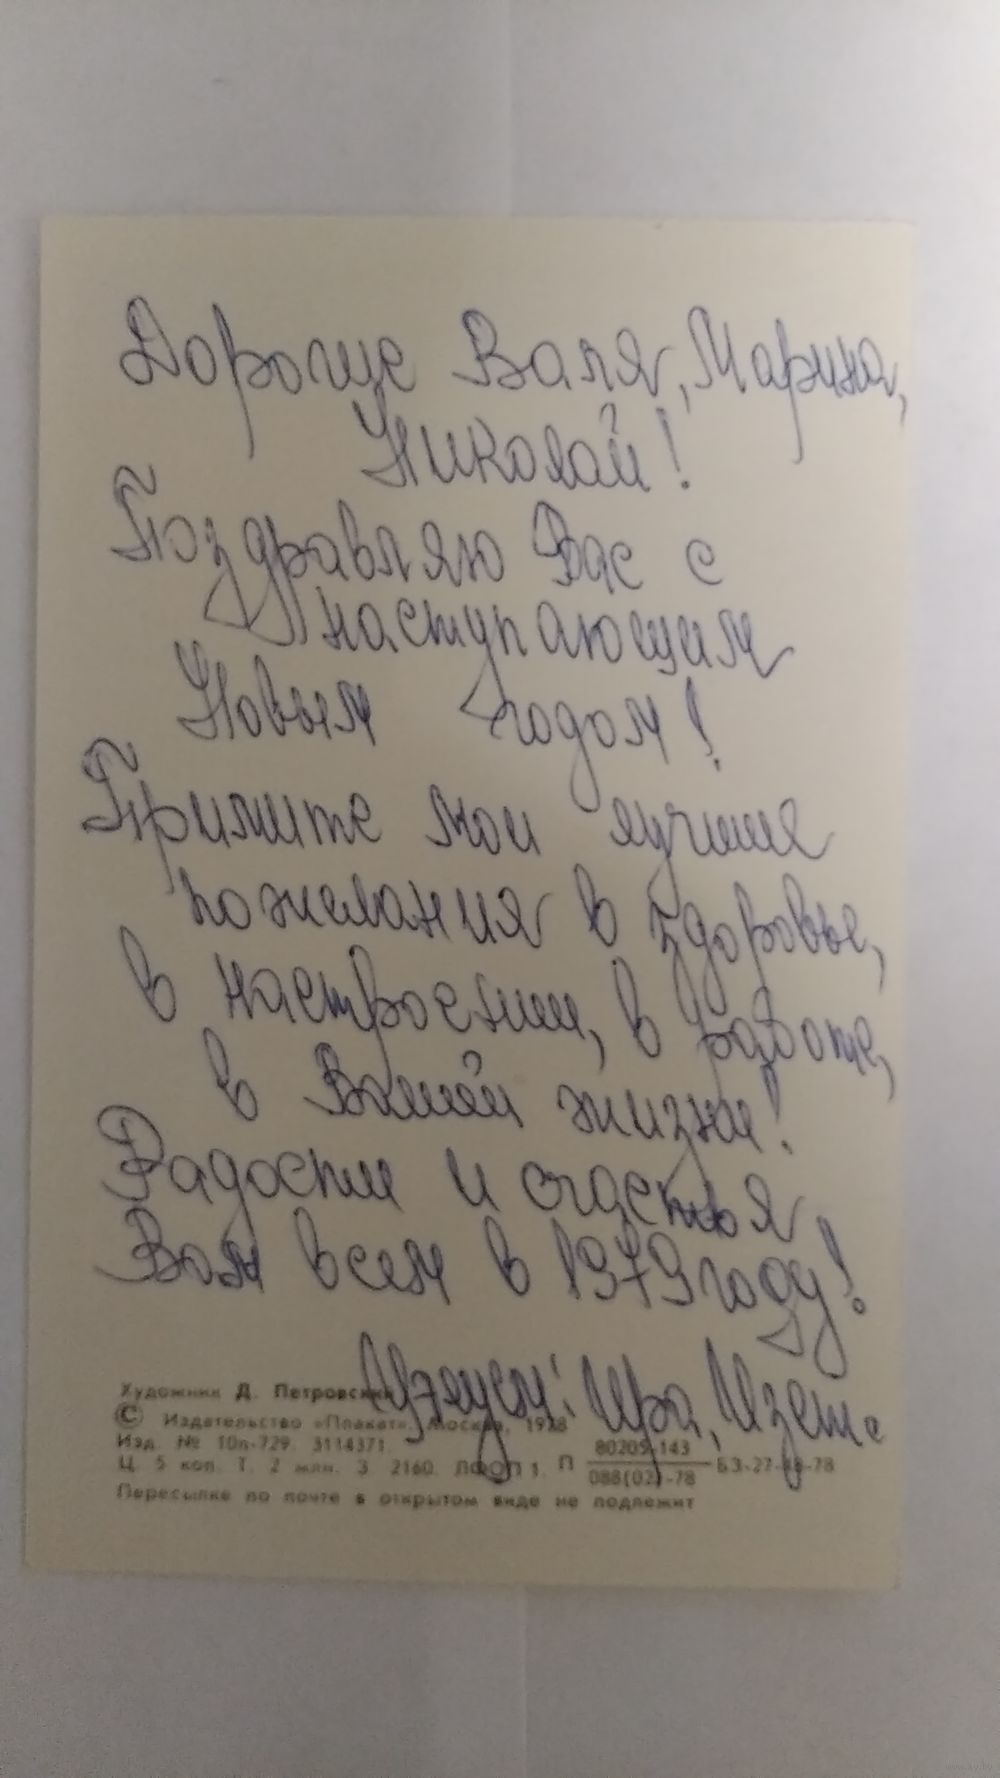 Дорогие Валя, Марина,
Николай!
Поздравляю Вас с
наступающим
Новым годом!
Примите мои лучшие
пожелания в здоровье,
в настроении, в работе,
в Вашей жизни!
Радости и счастья
Вам всем в 1979 году!
Ира,
Художник Д. Петровский
© Издательство «Плакат». Москва, 1978
Изд. № 10п-729. 3114371.
Ц. 5 коп. Т. 2 млн. З. 2160. ЛФОП 1. П 80205-143
088(02)-78 БЗ-27-48-78
Пересылке по почте в открытом виде не подлежит